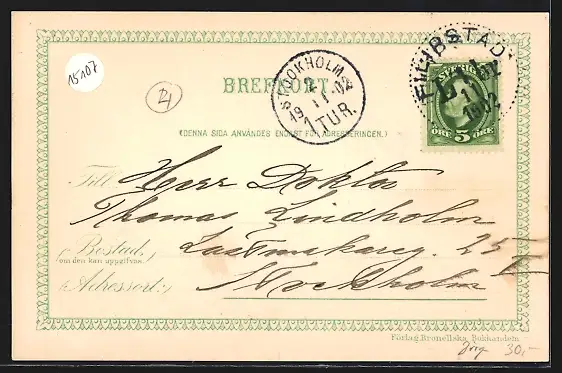 15107
STOCKHOLM
11
19
1 TUR.
FILIPSTAD
11
1902
SVERIGE
ÖRE 5 ÖRE
BREFKORT.
(DENNA SIDA ANVÄNDES ENDAST FÖR ADRESSERINGEN.)
Till Herr Doktor
Thomas Lindholm
Bostad,
(om den kan uppgifvas)
25
Adressort: Stockholm
Förlag. Bronellska Bokhandeln
30,-